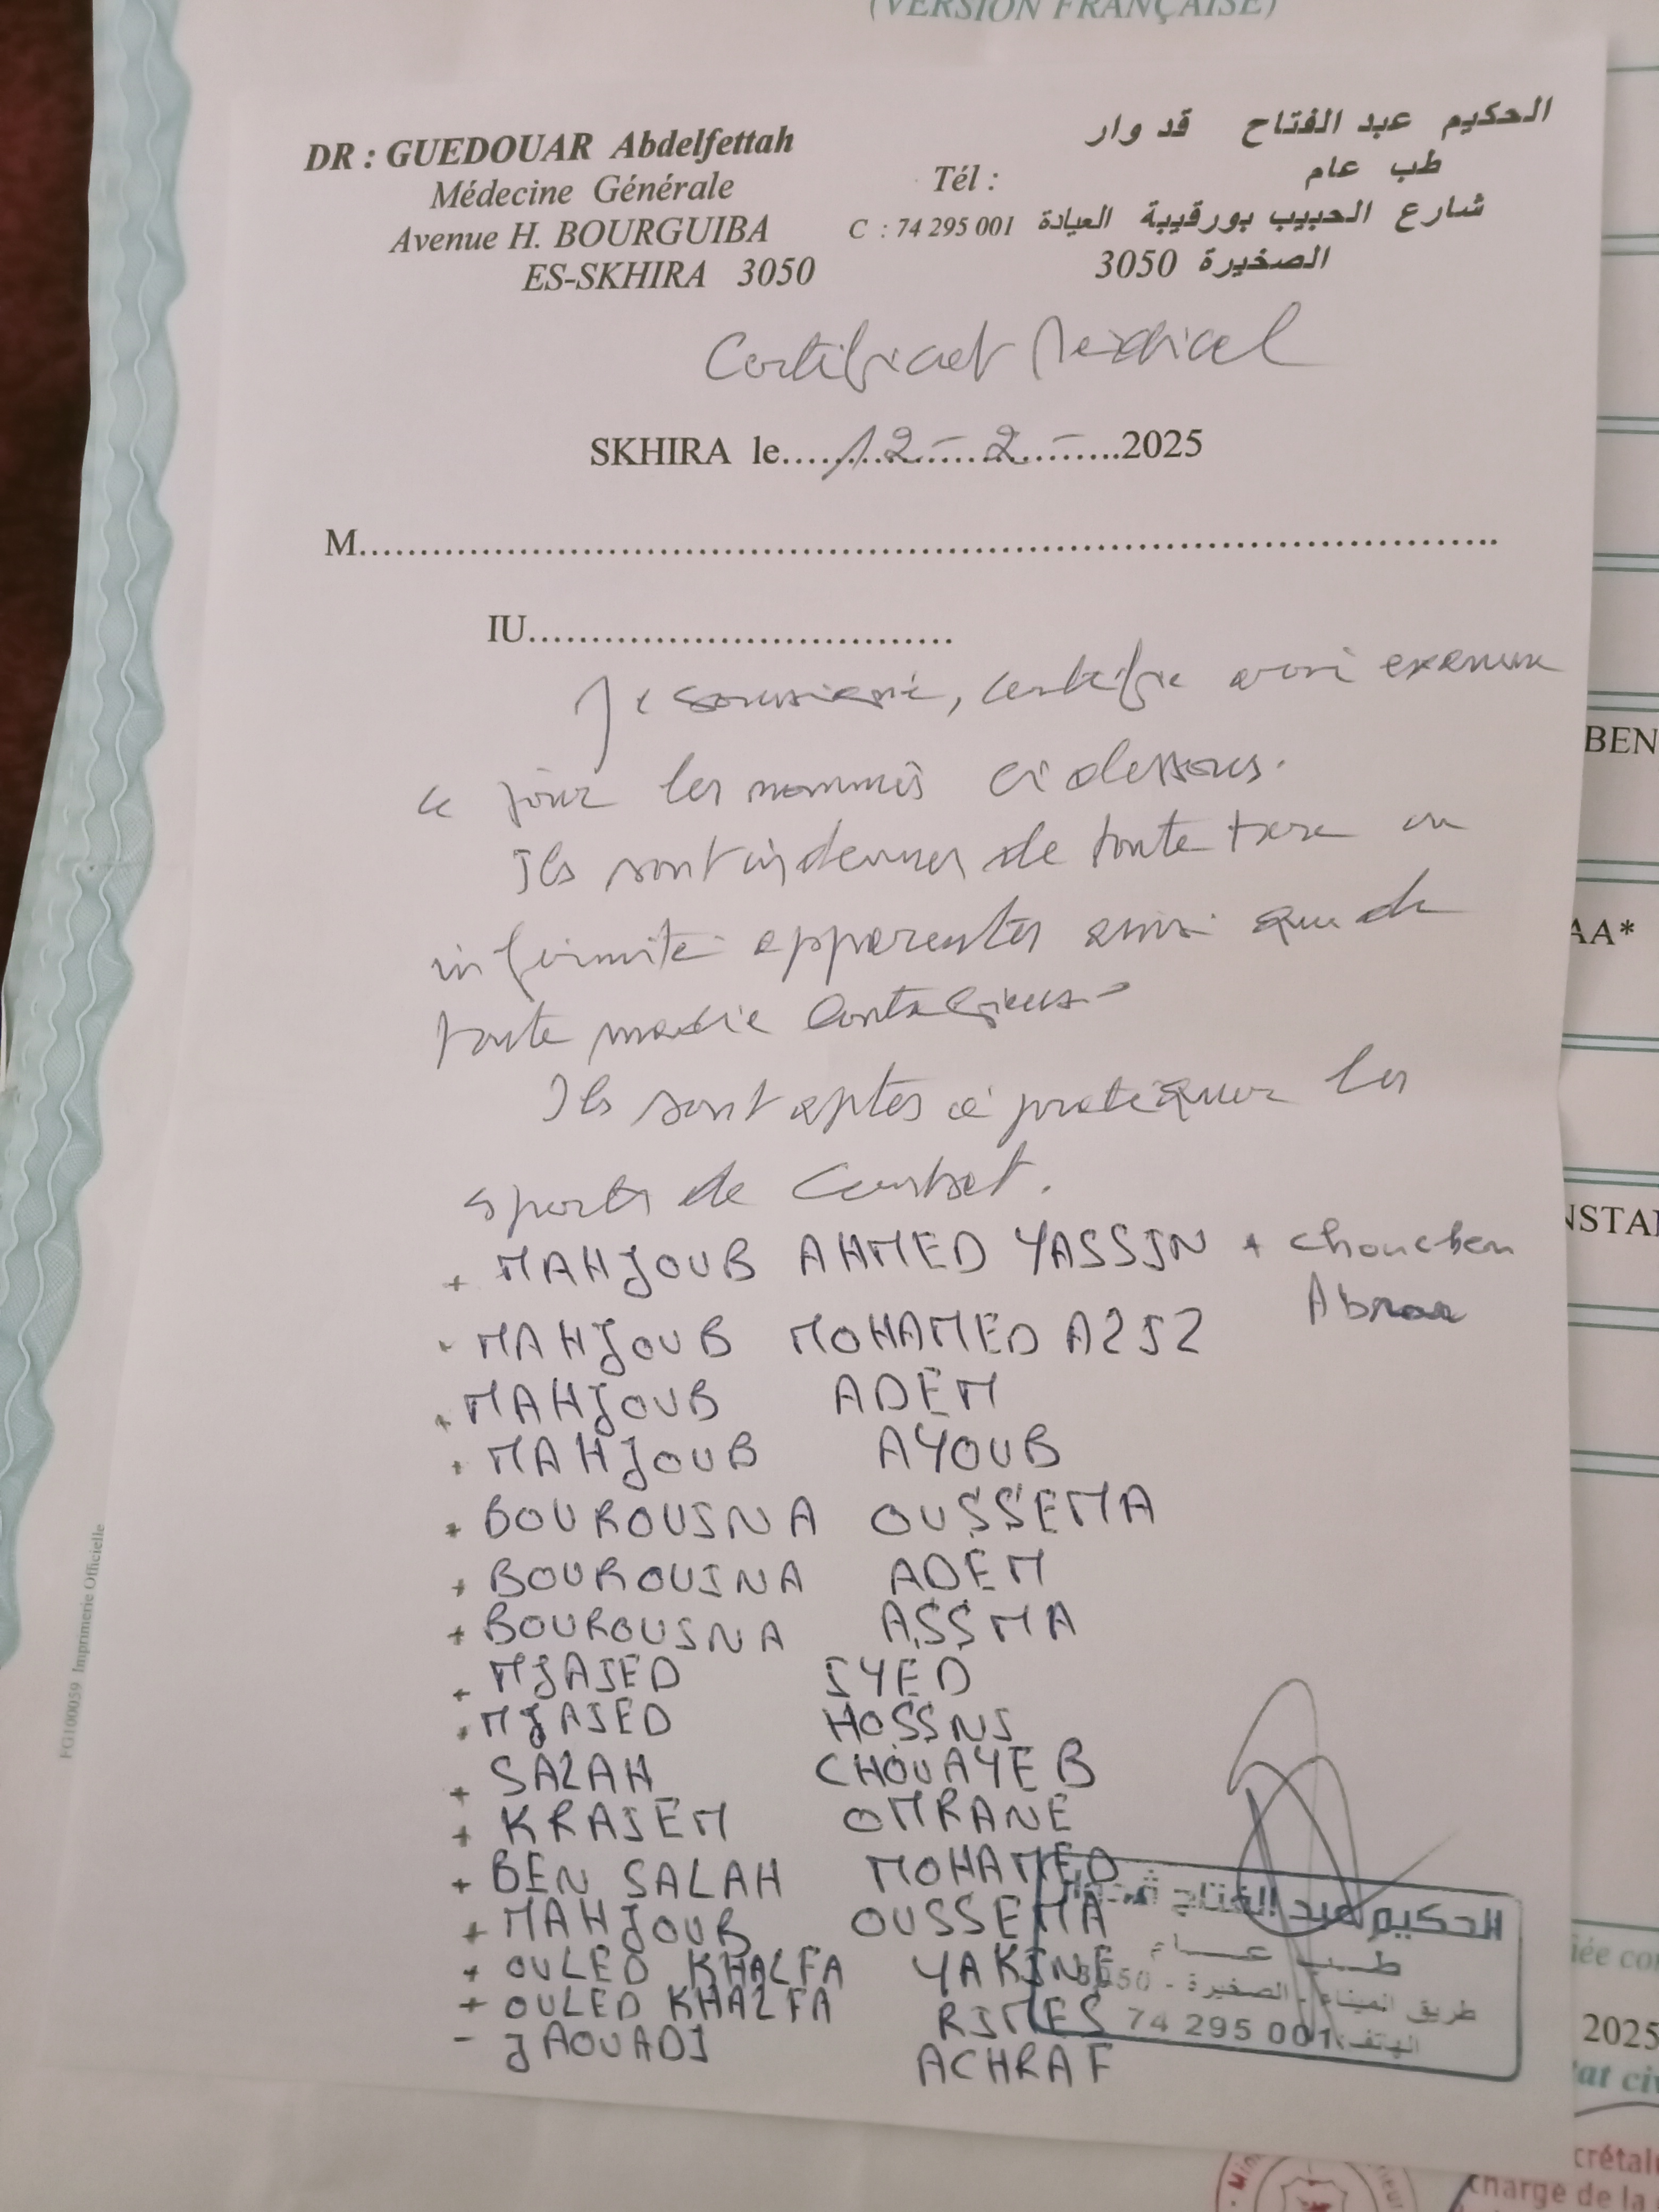 (VERSION FRANÇAISE)
DR : GUEDOUAR Abdelfettah
Médecine Générale
Avenue H. BOURGUIBA
ES-SKHIRA 3050
Tél :
C : 74 295 001
الحكيم عبد الفتاح قدوار
طب عام
شارع الحبيب بورقيبة العيادة
الصخيرة 3050
Certificat Médical
SKHIRA le.......12-2-.......2025
M..........................................................................................
IU..................................
Je soussigné, certifie avoir examiné
ce jour les nommés ci dessous.
Ils sont indemnes de toute tare ou
infirmité apparentes ainsi que de
toute maladie contagieuse
Ils sont aptes à pratiquer les
sports de Combat.
+ MAHJOUB AHMED YASSIN + Chouchen
Abrar
MAHJOUB MOHAMED AZIZ
+ MAHJOUB ADEM
+ MAHJOUB AYOUB
+ BOUROUINA OUSSEMA
+ BOUROUINA ADEM
+ BOUROUINA ASSMA
+ MJAIED IYED
+ MJAIED HOSSNI
+ SALAH CHOUAYEB
+ KRAIEM OMRANE
+ BEN SALAH MOHAMED
+ MAHJOUB OUSSEMA
+ OULED KHALFA YAKINE
+ OULED KHALFA RIMES
- JAOUADI ACHRAF
الحكيم عبد الفتاح
طب عام
طريق الميناء - الصخيرة - 3050
الهاتف: 74 295 001
FG100059 Imprimerie Officielle
BEN
AA*
2025